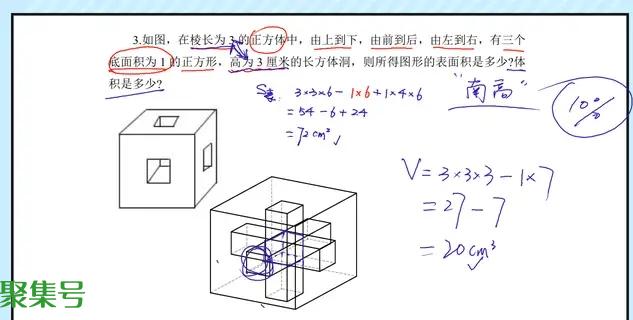 3.如图，在棱长为3的正方体中，由上到下，由前到后，由左到右，有三个
底面积为1的正方形，高为3厘米的长方体洞，则所得图形的表面积是多少?体
积是多少?
S表: 3×3×6-1×6+1×4×6
=54-6+24
=72cm²
"南高"
10%
V=3×3×3-1×7
=27-7
=20cm³
聚集号